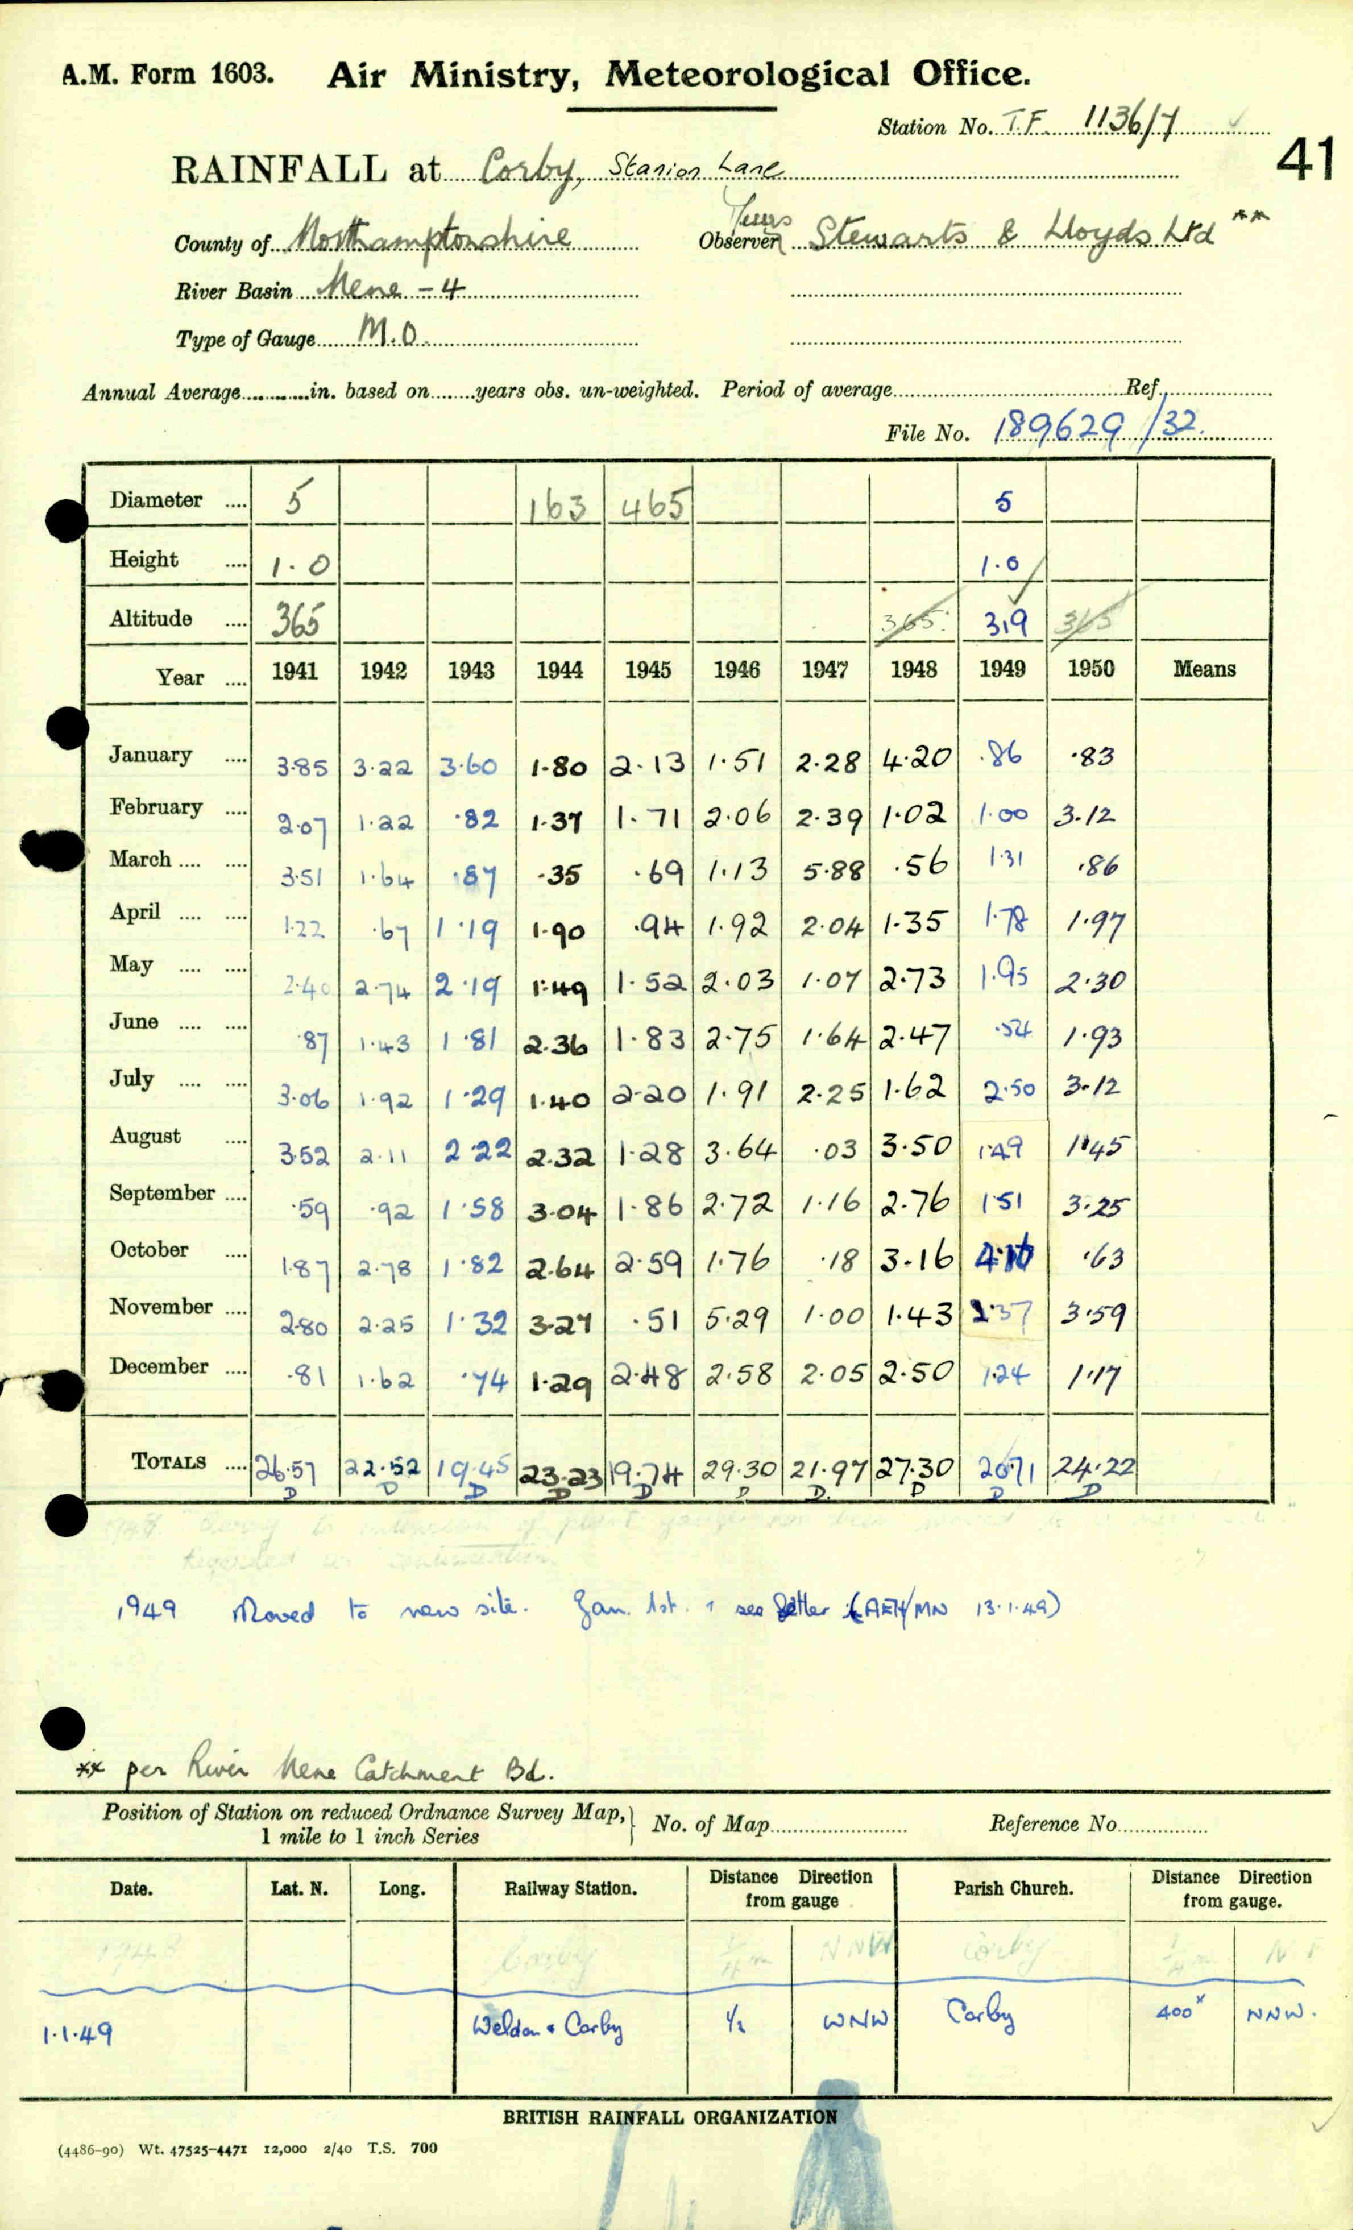 A.M. Form 1603. Air Ministry, Meteorological Office.
Station No. T.F. 1136/7
41
RAINFALL at Corby, Stanion Lane
County of Northamptonshire Observer Messrs Stewarts & Lloyds Ltd **
River Basin Nene - 4
Type of Gauge M.O.
Annual Average in. based on years obs. un-weighted. Period of average Ref.
File No. 189629/32.
Diameter .... 5 163 465 5
Height .... 1.0 1.0
Altitude .... 365 365 319 365
Year .... 1941 1942 1943 1944 1945 1946 1947 1948 1949 1950 Means
January .... 3.85 3.22 3.60 1.80 2.13 1.51 2.28 4.20 .86 .83
February .... 2.07 1.22 .82 1.37 1.71 2.06 2.39 1.02 1.00 3.12
March .... .... 3.51 1.64 .87 .35 .69 1.13 5.88 .56 1.31 .86
April .... .... 1.22 .67 1.19 1.90 .94 1.92 2.04 1.35 1.78 1.97
May .... .... 2.40 2.74 2.19 1.49 1.52 2.03 1.07 2.73 1.95 2.30
June .... .... .87 1.43 1.81 2.36 1.83 2.75 1.64 2.47 .54 1.93
July .... .... 3.06 1.92 1.29 1.40 2.20 1.91 2.25 1.62 2.50 3.12
August .... 3.52 2.11 2.22 2.32 1.28 3.64 .03 3.50 1.49 1.45
September .... .59 .92 1.58 3.04 1.86 2.72 1.16 2.76 1.51 3.25
October .... 1.87 2.78 1.82 2.64 2.59 1.76 .18 3.16 4.16 .63
November .... 2.80 2.25 1.32 3.27 .51 5.29 1.00 1.43 2.37 3.59
December .... .81 1.62 .74 1.29 2.48 2.58 2.05 2.50 1.24 1.17
TOTALS .... 26.57 22.52 19.45 23.23 19.74 29.30 21.97 27.30 20.71 24.22
D D D D D D D. D D D
1948 Owing to extension of plant gauge has been moved to a new site
Regarded as continuation
1949 Moved to new site. Jan. 1st. see letter (AEH/MN 13.1.49)
** per River Nene Catchment Bd.
Position of Station on reduced Ordnance Survey Map, 1 mile to 1 inch Series } No. of Map Reference No.
Date. Lat. N. Long. Railway Station. Distance Direction from gauge Parish Church. Distance Direction from gauge.
1948 Corby 1/4 m NNW Corby 1/4 m
1.1.49 Weldon & Corby 1/2 WNW Corby 400x NNW.
BRITISH RAINFALL ORGANIZATION
(4486-90) Wt. 47525-4471 12,000 2/40 T.S. 700